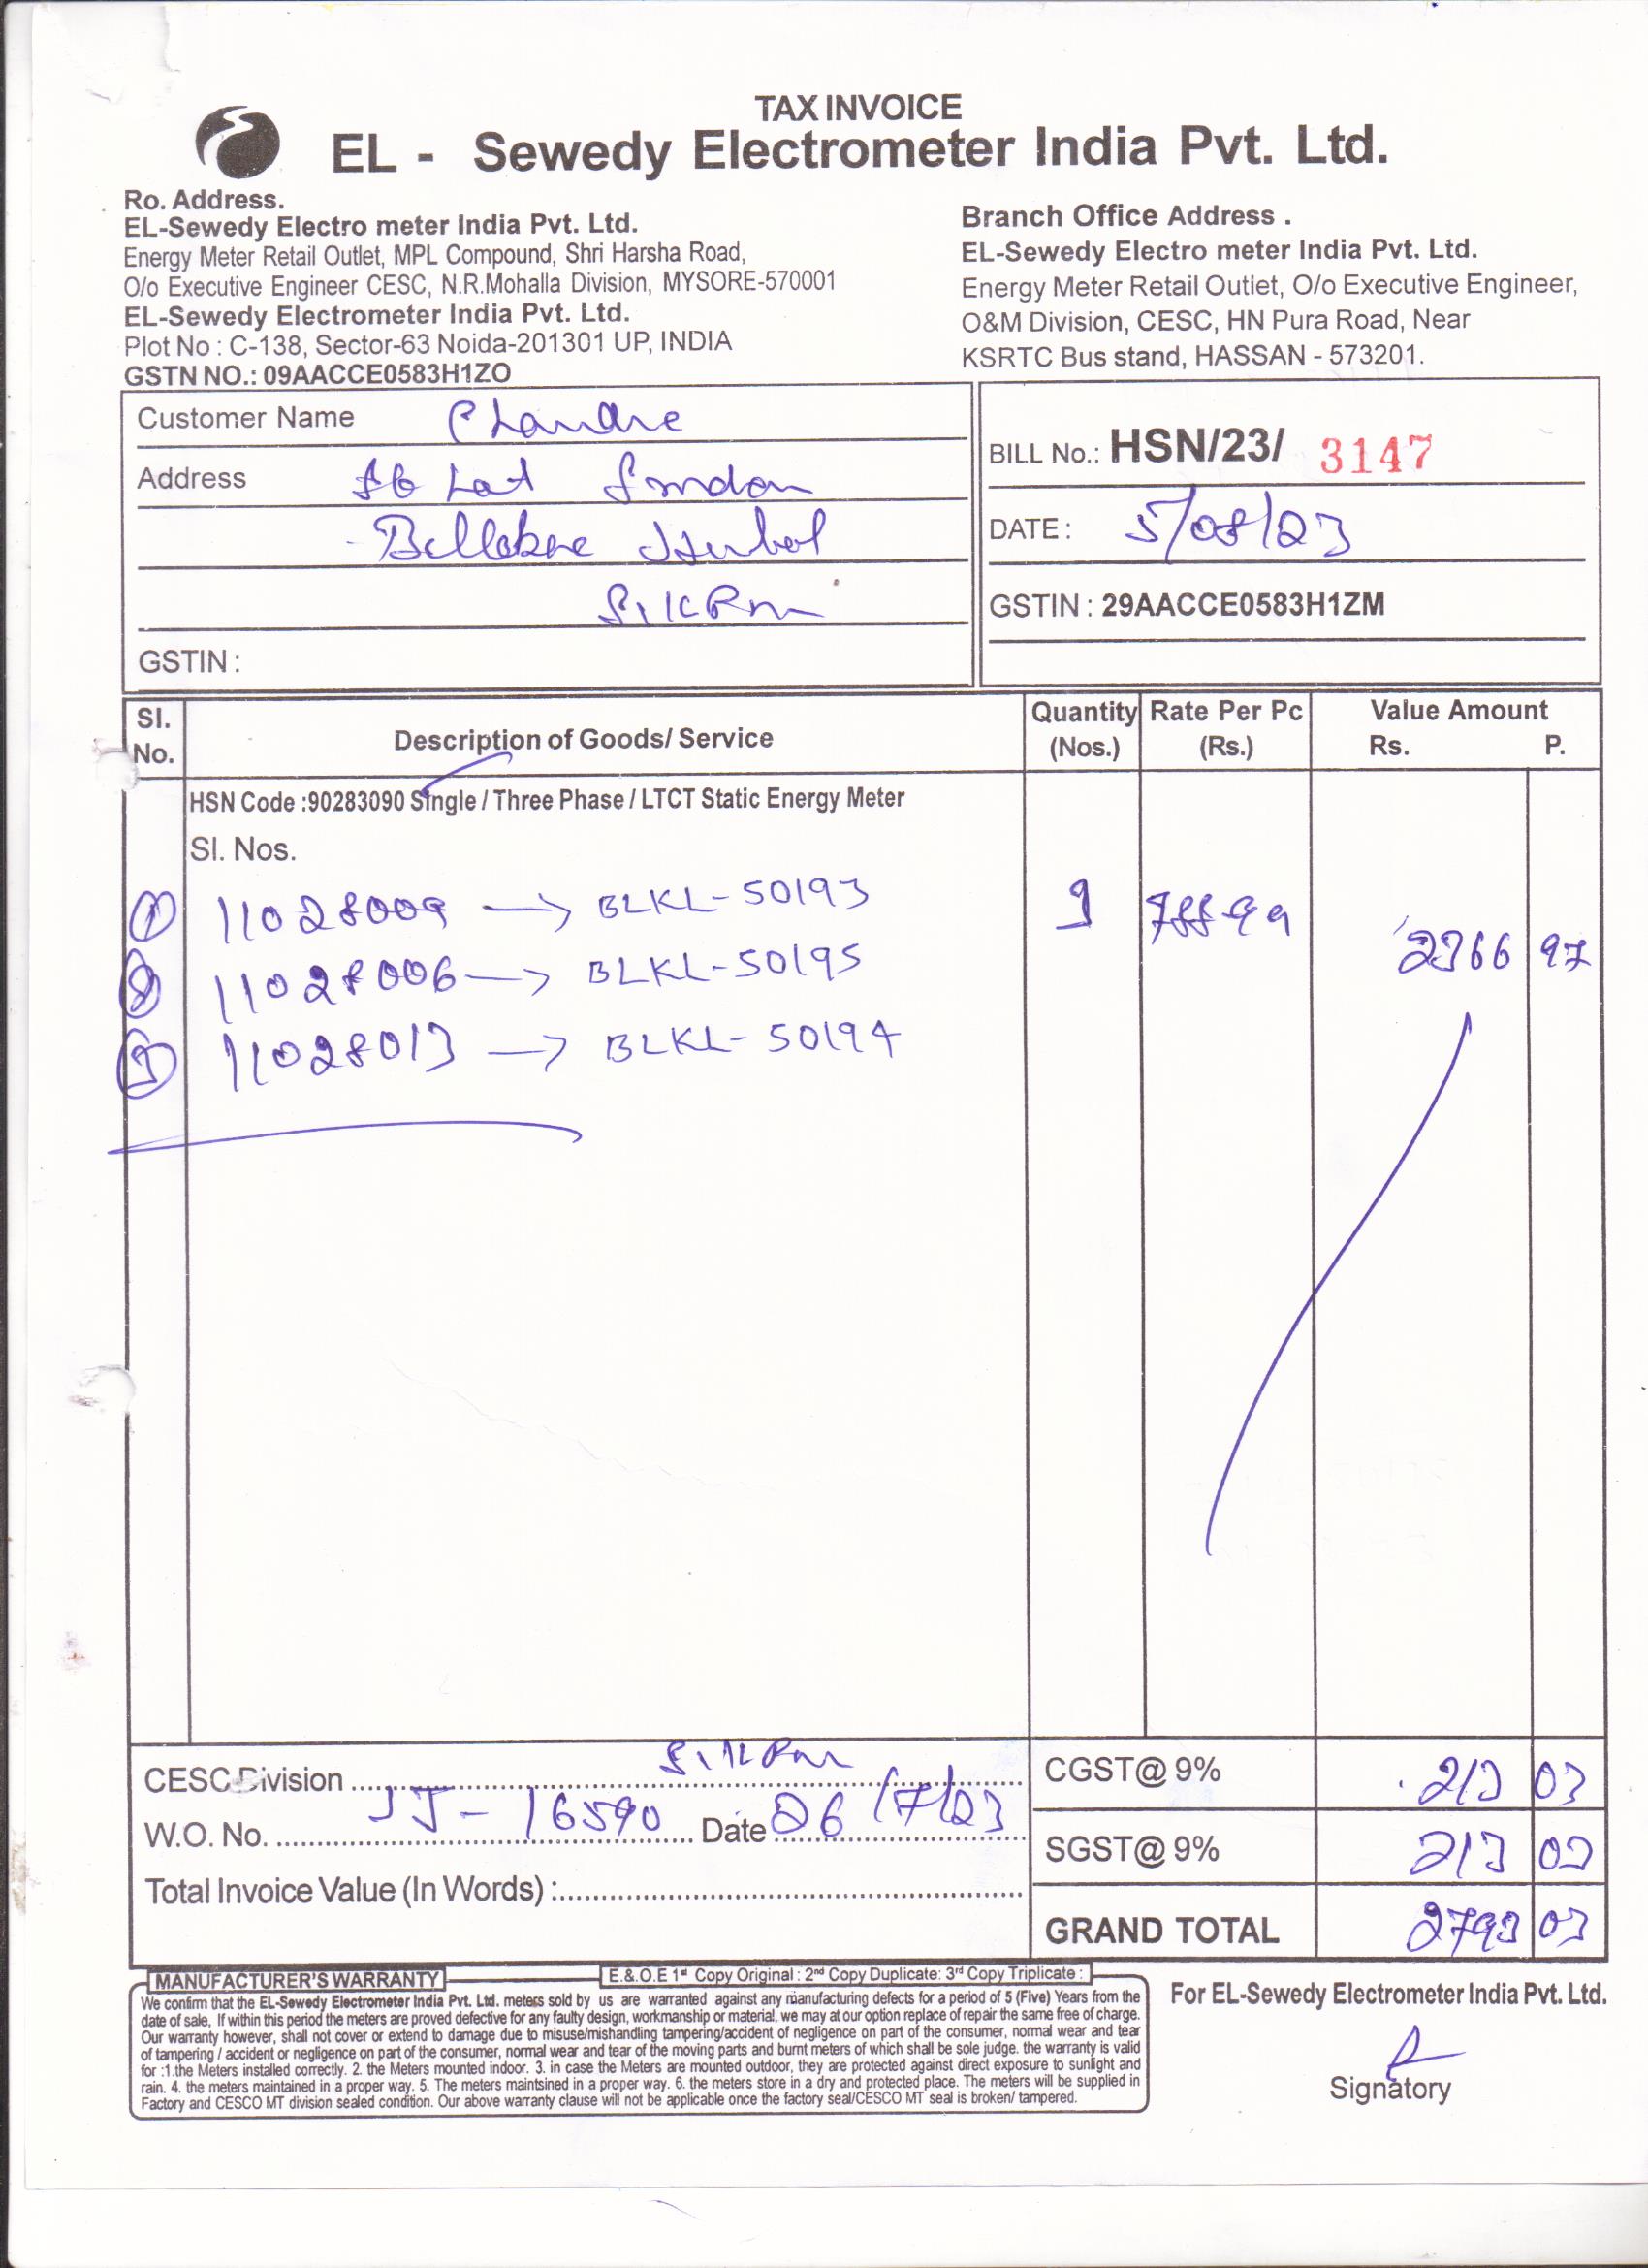 TAX INVOICE
EL - Sewedy Electrometer India Pvt. Ltd.
Ro. Address.
EL-Sewedy Electro meter India Pvt. Ltd.
Energy Meter Retail Outlet, MPL Compound, Shri Harsha Road,
O/o Executive Engineer CESC, N.R.Mohalla Division, MYSORE-570001
EL-Sewedy Electrometer India Pvt. Ltd.
Plot No : C-138, Sector-63 Noida-201301 UP, INDIA
GSTN NO.: 09AACCE0583H1ZO
Branch Office Address .
EL-Sewedy Electro meter India Pvt. Ltd.
Energy Meter Retail Outlet, O/o Executive Engineer,
O&M Division, CESC, HN Pura Road, Near
KSRTC Bus stand, HASSAN - 573201.
Customer Name
Address
GSTIN :
BILL No.: HSN/23/ 3147
DATE : 5/08/23
GSTIN : 29AACCE0583H1ZM
Sl. No. Description of Goods/ Service Quantity (Nos.) Rate Per Pc (Rs.) Value Amount Rs. P.
HSN Code :90283090 Single / Three Phase / LTCT Static Energy Meter
Sl. Nos.
1 11028009 → BLKL-50193 3 788 99 2366 97
2 11028006 → BLKL-50195
3 11028013 → BLKL-50194
CESC Division
W.O. No. JJ-16590 Date 26/7/23
Total Invoice Value (In Words) :
CGST@ 9% 213 03
SGST@ 9% 213 03
GRAND TOTAL 2793 03
MANUFACTURER'S WARRANTY
E.& .O.E 1st Copy Original : 2nd Copy Duplicate: 3rd Copy Triplicate :
We confirm that the EL-Sewedy Electrometer India Pvt. Ltd. meters sold by us are warranted against any manufacturing defects for a period of 5 (Five) Years from the
date of sale, If within this period the meters are proved defective for any faulty design, workmanship or material, we may at our option replace of repair the same free of charge.
Our warranty however, shall not cover or extend to damage due to misuse/mishandling tampering/accident of negligence on part of the consumer, normal wear and tear
of tampering / accident or negligence on part of the consumer, normal wear and tear of the moving parts and burnt meters of which shall be sole judge. the warranty is valid
for :1.the Meters installed correctly. 2. the Meters mounted indoor. 3. in case the Meters are mounted outdoor, they are protected against direct exposure to sunlight and
rain. 4. the meters maintained in a proper way. 5. The meters maintsined in a proper way. 6. the meters store in a dry and protected place. The meters will be supplied in
Factory and CESCO MT division sealed condition. Our above warranty clause will not be applicable once the factory seal/CESCO MT seal is broken/ tampered.
For EL-Sewedy Electrometer India Pvt. Ltd.
Signatory